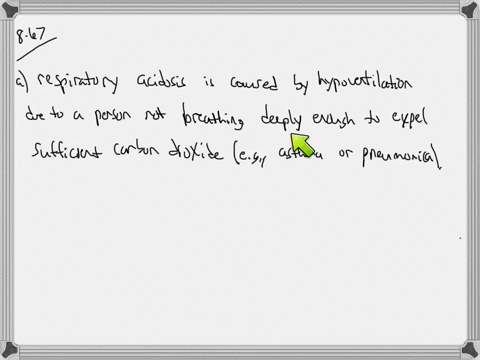 8.67
a) respiratory acidosis is caused by hypoventilation
due to a person not breathing deeply enough to expel
sufficient carbon dioxide (e.g., asthma or pneumonia)